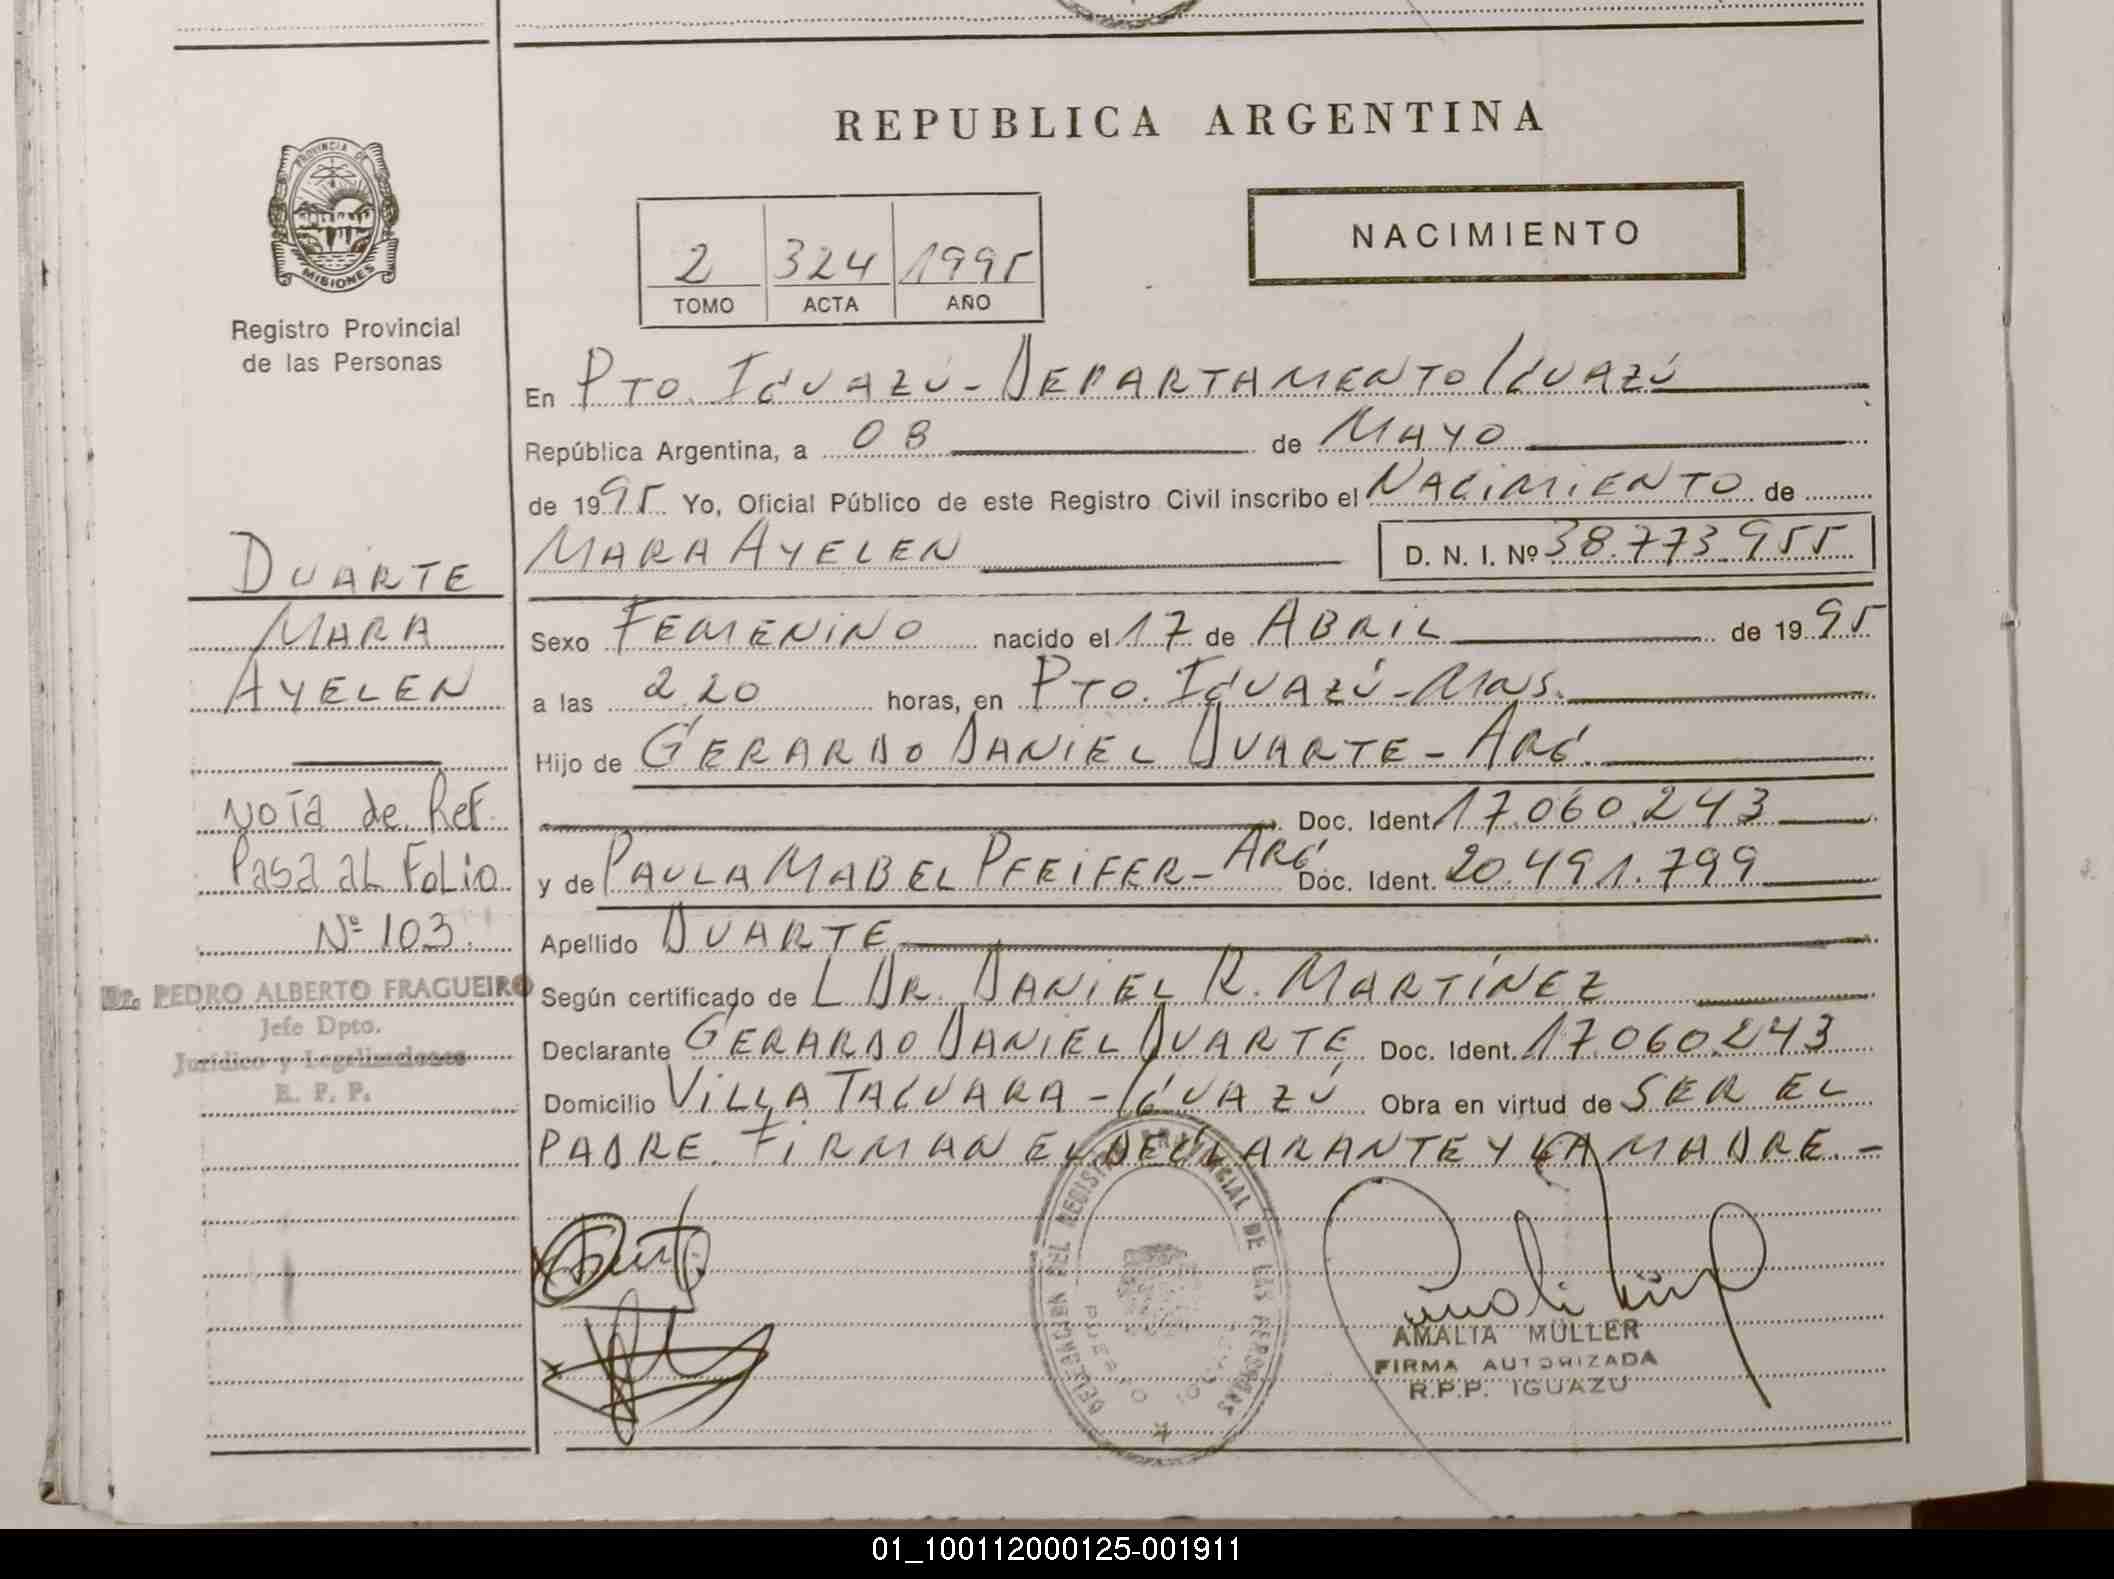 REPUBLICA ARGENTINA
PROVINCIA DE
MISIONES
Registro Provincial
de las Personas
NACIMIENTO
2 324 1995
TOMO ACTA AÑO
En PTO. IGUAZÚ - DEPARTAMENTO IGUAZÚ
República Argentina, a 08 de MAYO
de 1995 Yo, Oficial Público de este Registro Civil inscribo el NACIMIENTO de
MARA AYELEN D. N. I. Nº 38.773.955
DUARTE
MARA
AYELEN
Sexo FEMENINO nacido el 17 de ABRIL de 1995
a las 2 20 horas, en PTO. IGUAZÚ - Mns.
Hijo de GERARDO DANIEL DUARTE - ARG.
Doc. Ident. 17.060.243
y de PAULA MABEL PFEIFER - ARG Doc. Ident. 20.491.799
Apellido DUARTE
Según certificado de L DR. DANIEL R. MARTÍNEZ
Declarante GERARDO DANIEL DUARTE Doc. Ident. 17.060.243
Domicilio VILLA TACUARA - IGUAZÚ Obra en virtud de SER EL
PADRE. FIRMAN EL DECLARANTE Y LA MADRE. -
Nota de Ref.
Pasa al Folio
Nº 103.
Dr. PEDRO ALBERTO FRAGUEIRO
Jefe Dpto.
Jurídico y Legalizaciones
R. P. P.
DELEGACION DEL REGISTRO PROVINCIAL DE LAS PERSONAS
PUERTO IGUAZU
AMALIA MÜLLER
FIRMA AUTORIZADA
R.P.P. IGUAZU
01_100112000125-001911